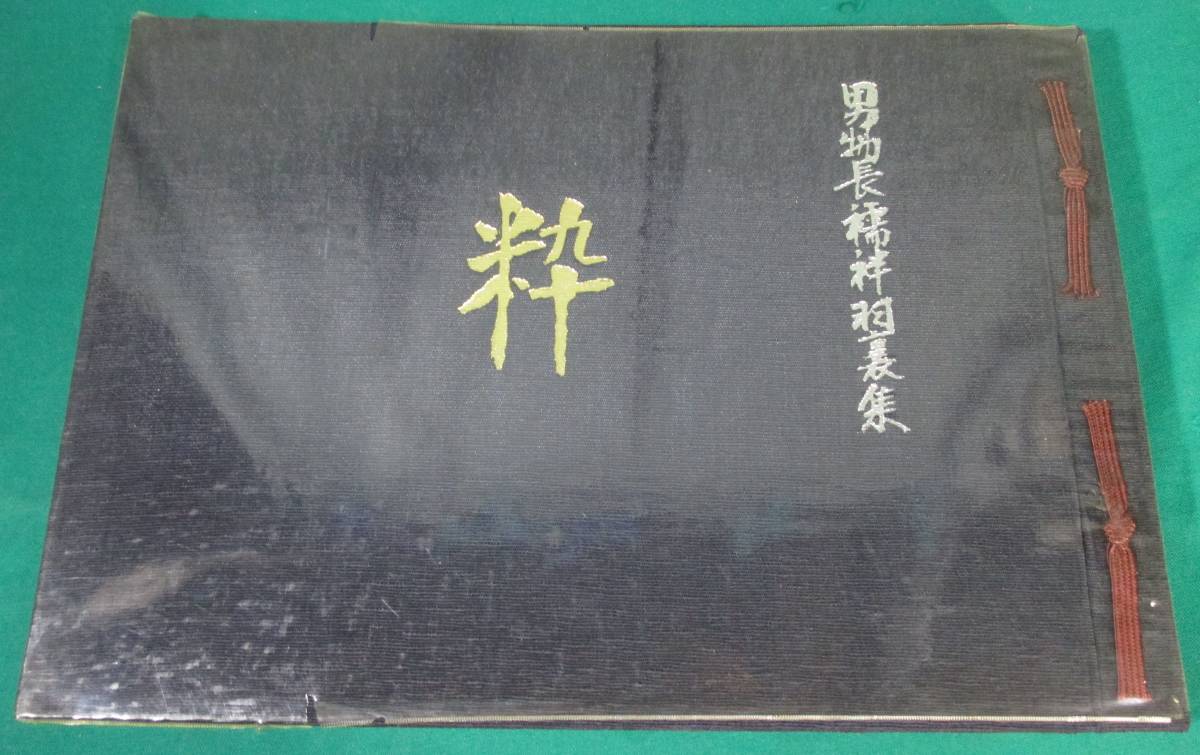 男物長襦袢羽裏集
粋